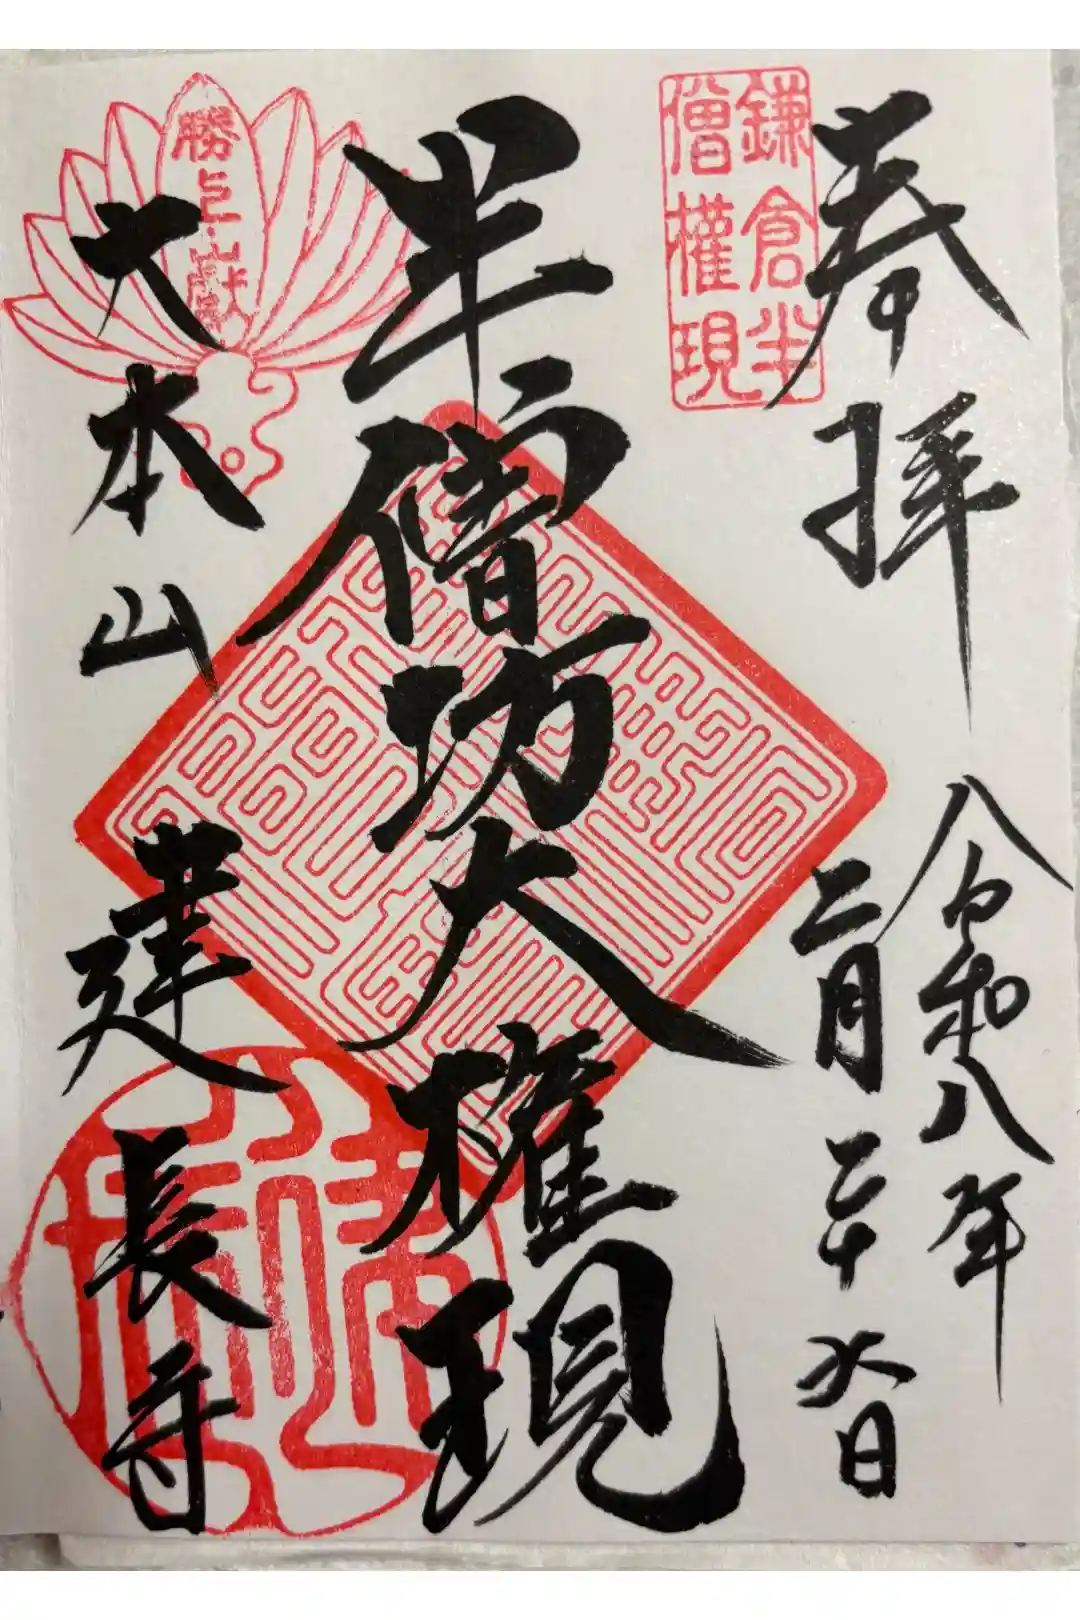 奉拝
令和八年
二月二十六日
鎌倉半
僧権現
半僧坊大権現
勝上嶽
大本山
建長寺